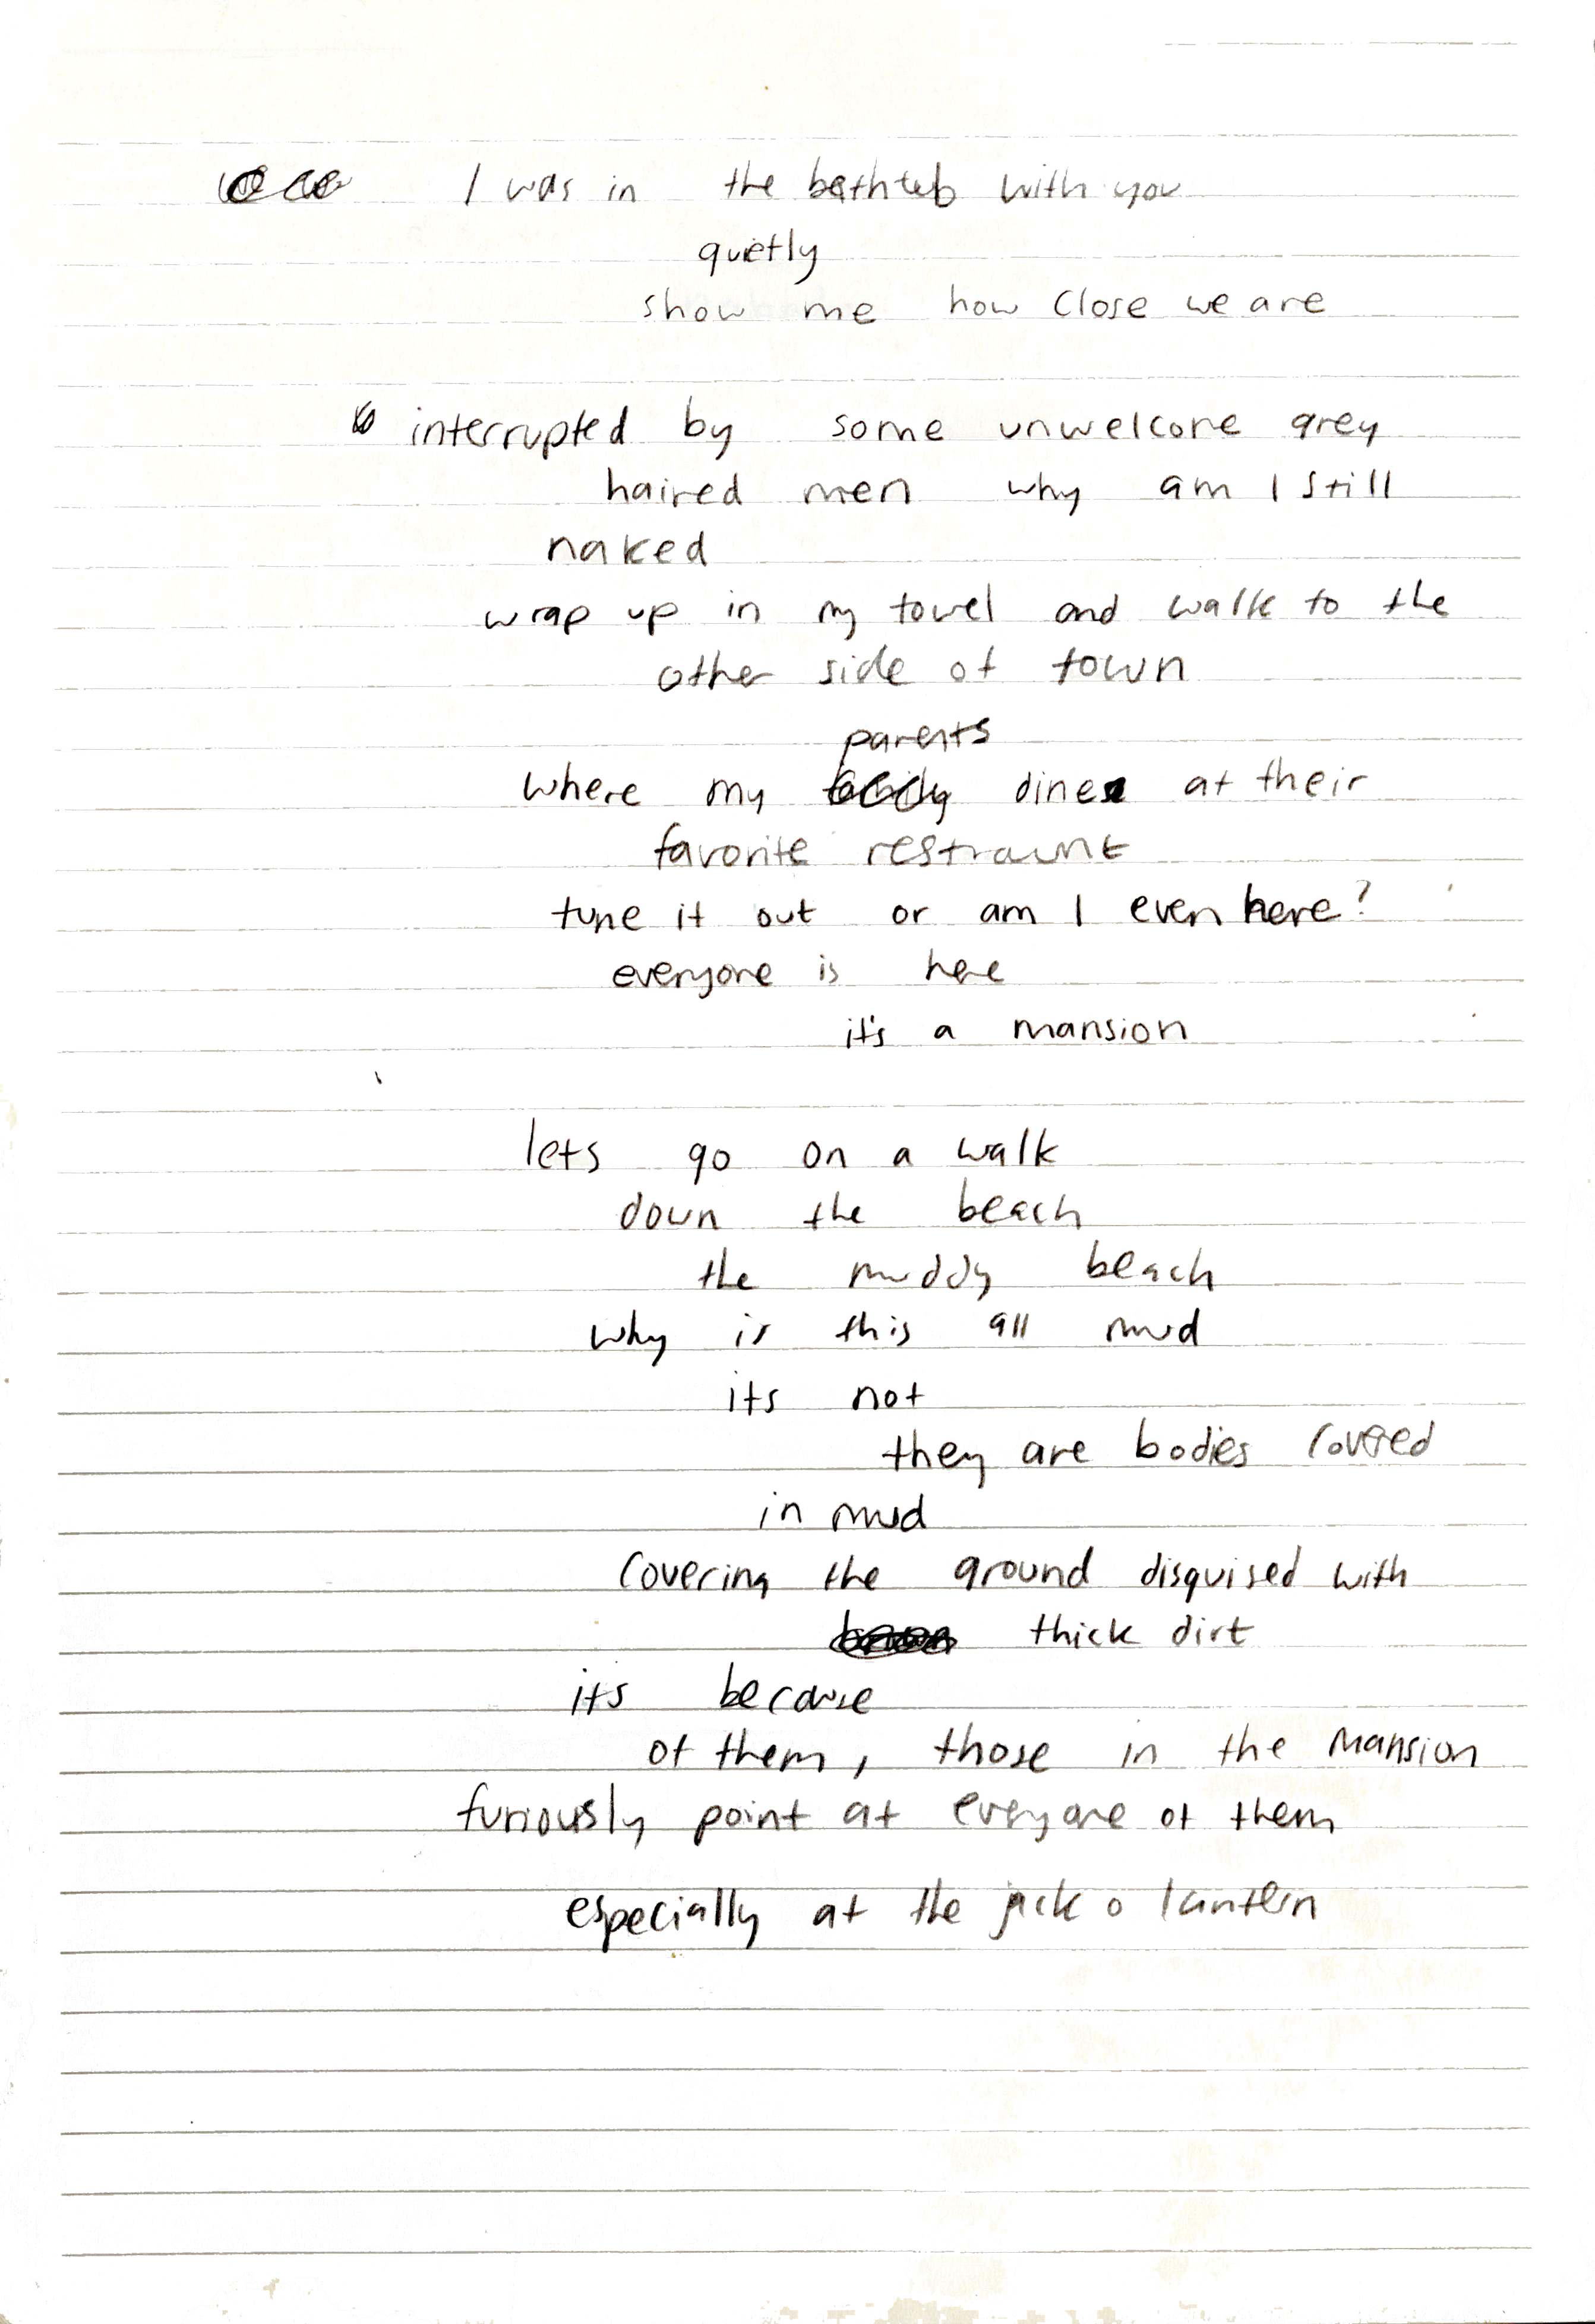 I was in the bathtub with you
quietly
show me how close we are
interrupted by some unwelcome grey
haired men why am I still
naked
wrap up in my towel and walk to the
other side of town
parents
where my dine at their
favorite restraunt
tune it out or am I even here?
everyone is here
it's a mansion
lets go on a walk
down the beach
the muddy beach
why is this all mud
its not
they are bodies covered
in mud
covering the ground disguised with
thick dirt
its because
of them, those in the mansion
furiously point at everyone of them
especially at the jack o lantern